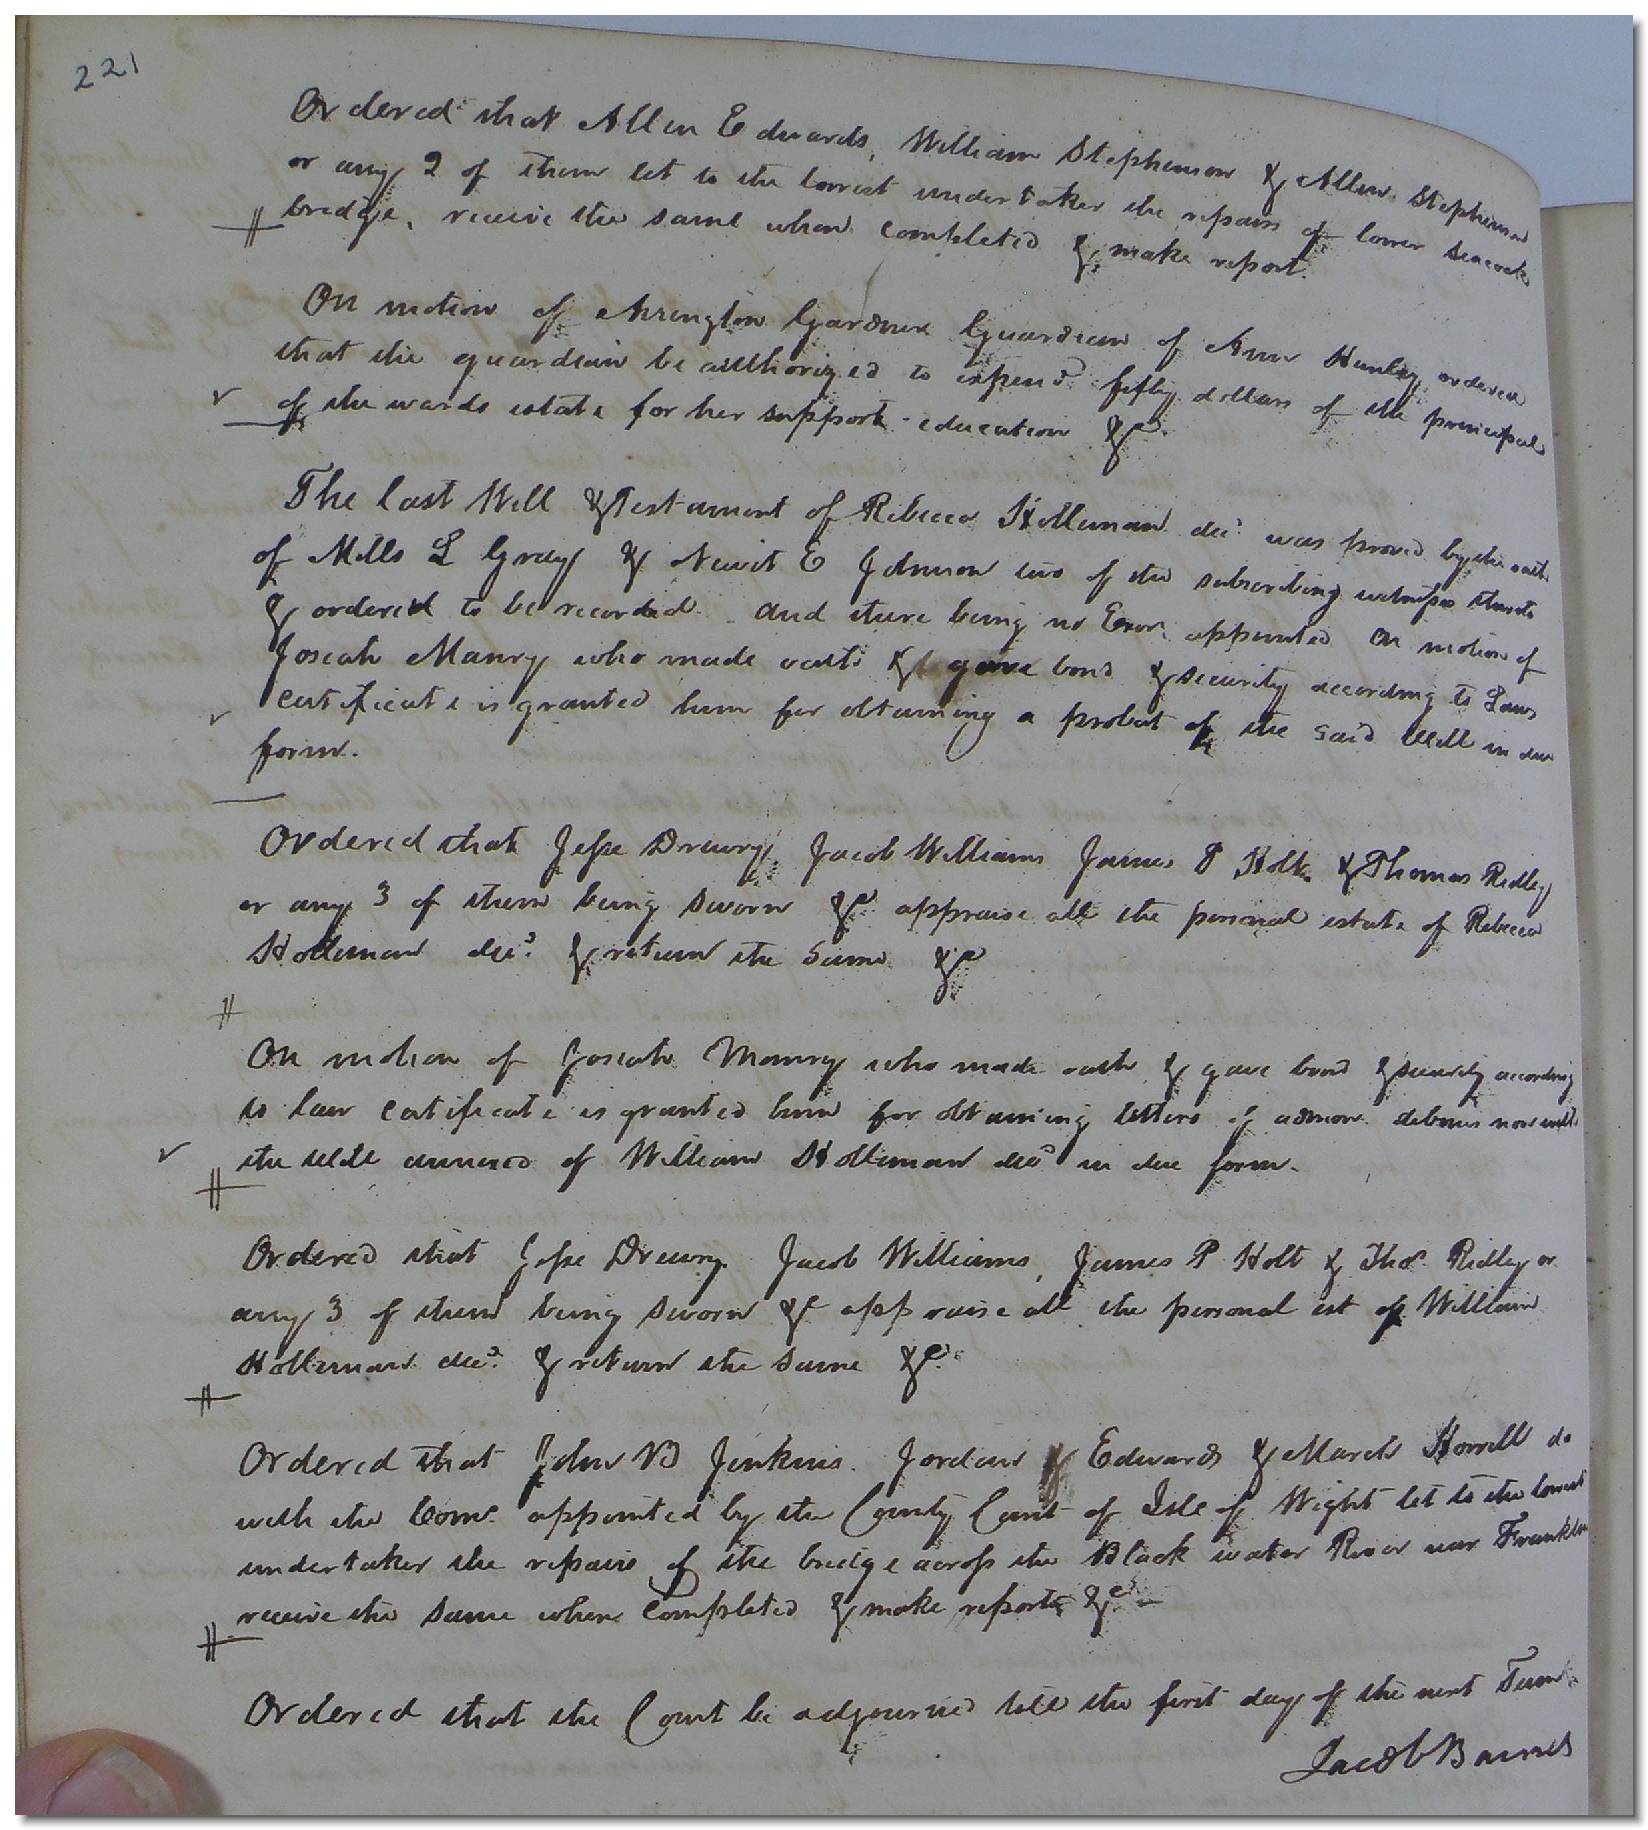 221
Ordered that Allen Edwards, William Stephenson & Allen Stephenson
or any 2 of them let to the lowest undertaker the repairs of lower Seacock
bridge, receive the same when completed & make report.
On motion of Arrington Gardner Guardian of Ann Hanley ordered
that the guardian be authorized to expend fifty dollars of the principal
of the wards estate for her support education &c.
The last Will & Testament of Rebecca Holleman decd. was proved by the oath
of Mills L Gray & Newit E Johnson two of the subscribing witnesses thereto
& ordered to be recorded. And there being no Exor. appointed On motion of
Josiah Manry who made oath & gave bond & security according to Law
Certificate is granted him for obtaining a probat of the said Will in due
form.
Ordered that Jesse Drewry, Jacob Williams James P Holt & Thomas Ridley
or any 3 of them being sworn &c appraise all the personal estate of Rebecca
Holleman decd. & return the same &c
On motion of Josiah Manry who made oath & gave bond & security according
to law certificate is granted him for obtaining letters of admon. debonis non with
the Will annexed of William Holleman decd in due form.
Ordered that Jesse Drewry Jacob Williams, James P Holt & Thos. Ridley or
any 3 of them being sworn &c appraise all the personal est of William
Holleman decd. & return the same &c.
Ordered that John B Jenkins. Jordan Edwards & March Howell do
with the Com. appointed by the County Court of Isle of Wight let to the lowest
undertaker the repairs of the bridge across the Black water River near Franklin
receive the same when completed & make report &c.
Ordered that the Court be adjourned till the first day of the next Term.
Jacob Barnes